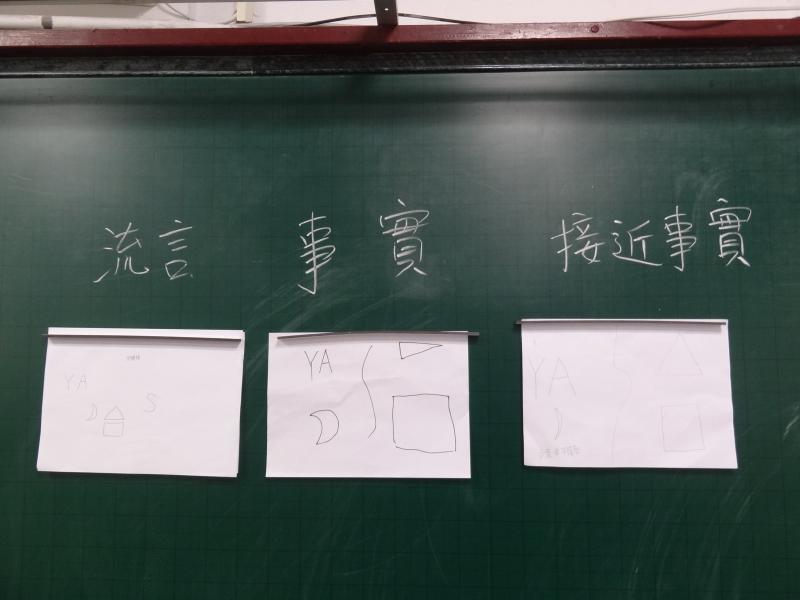 流言
事實
接近事實
YA
S
YA
YA